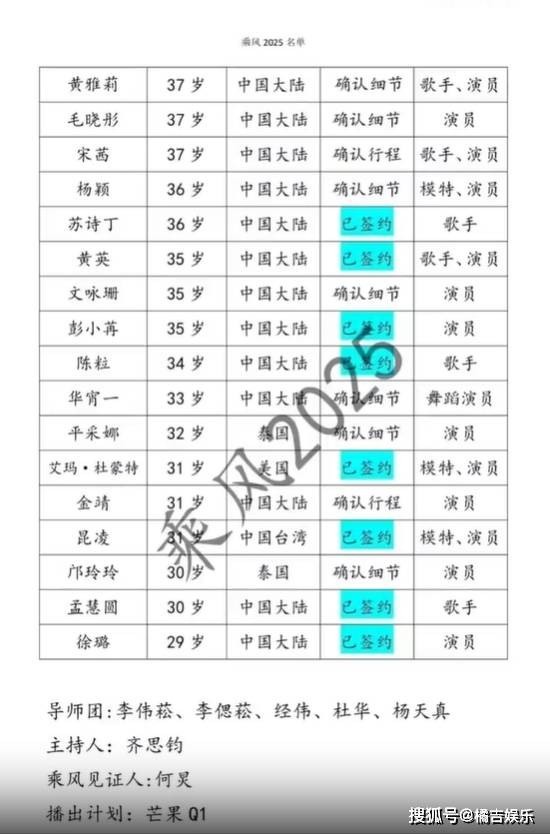 乘风 2025 名单
黄雅莉 37 岁 中国大陆 确认细节 歌手、演员
毛晓彤 37 岁 中国大陆 确认细节 演员
宋茜 37 岁 中国大陆 确认行程 歌手、演员
杨颖 36 岁 中国大陆 确认细节 模特、演员
苏诗丁 36 岁 中国大陆 已签约 歌手
黄英 35 岁 中国大陆 已签约 歌手、演员
文咏珊 35 岁 中国大陆 确认细节 演员
彭小苒 35 岁 中国大陆 已签约 演员
陈粒 34 岁 中国大陆 已签约 歌手
华宵一 33 岁 中国大陆 确认细节 舞蹈演员
平采娜 32 岁 泰国 确认细节 演员
艾玛·杜蒙特 31 岁 美国 已签约 模特、演员
金靖 31 岁 中国大陆 确认行程 演员
昆凌 31 岁 中国台湾 已签约 模特、演员
邝玲玲 30 岁 泰国 确认细节 演员
孟慧圆 30 岁 中国大陆 已签约 歌手
徐璐 29 岁 中国大陆 已签约 演员
乘风2025
导师团:李伟菘、李偲菘、经伟、杜华、杨天真
主持人：齐思钧
乘风见证人:何炅
播出计划：芒果 Q1
搜狐号@橘吉娱乐